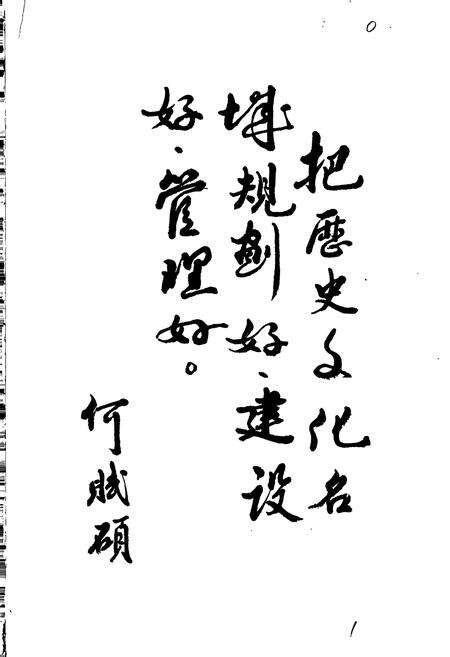 把歷史文化名
城規劃好、建设
好、管理好。
何賦碩